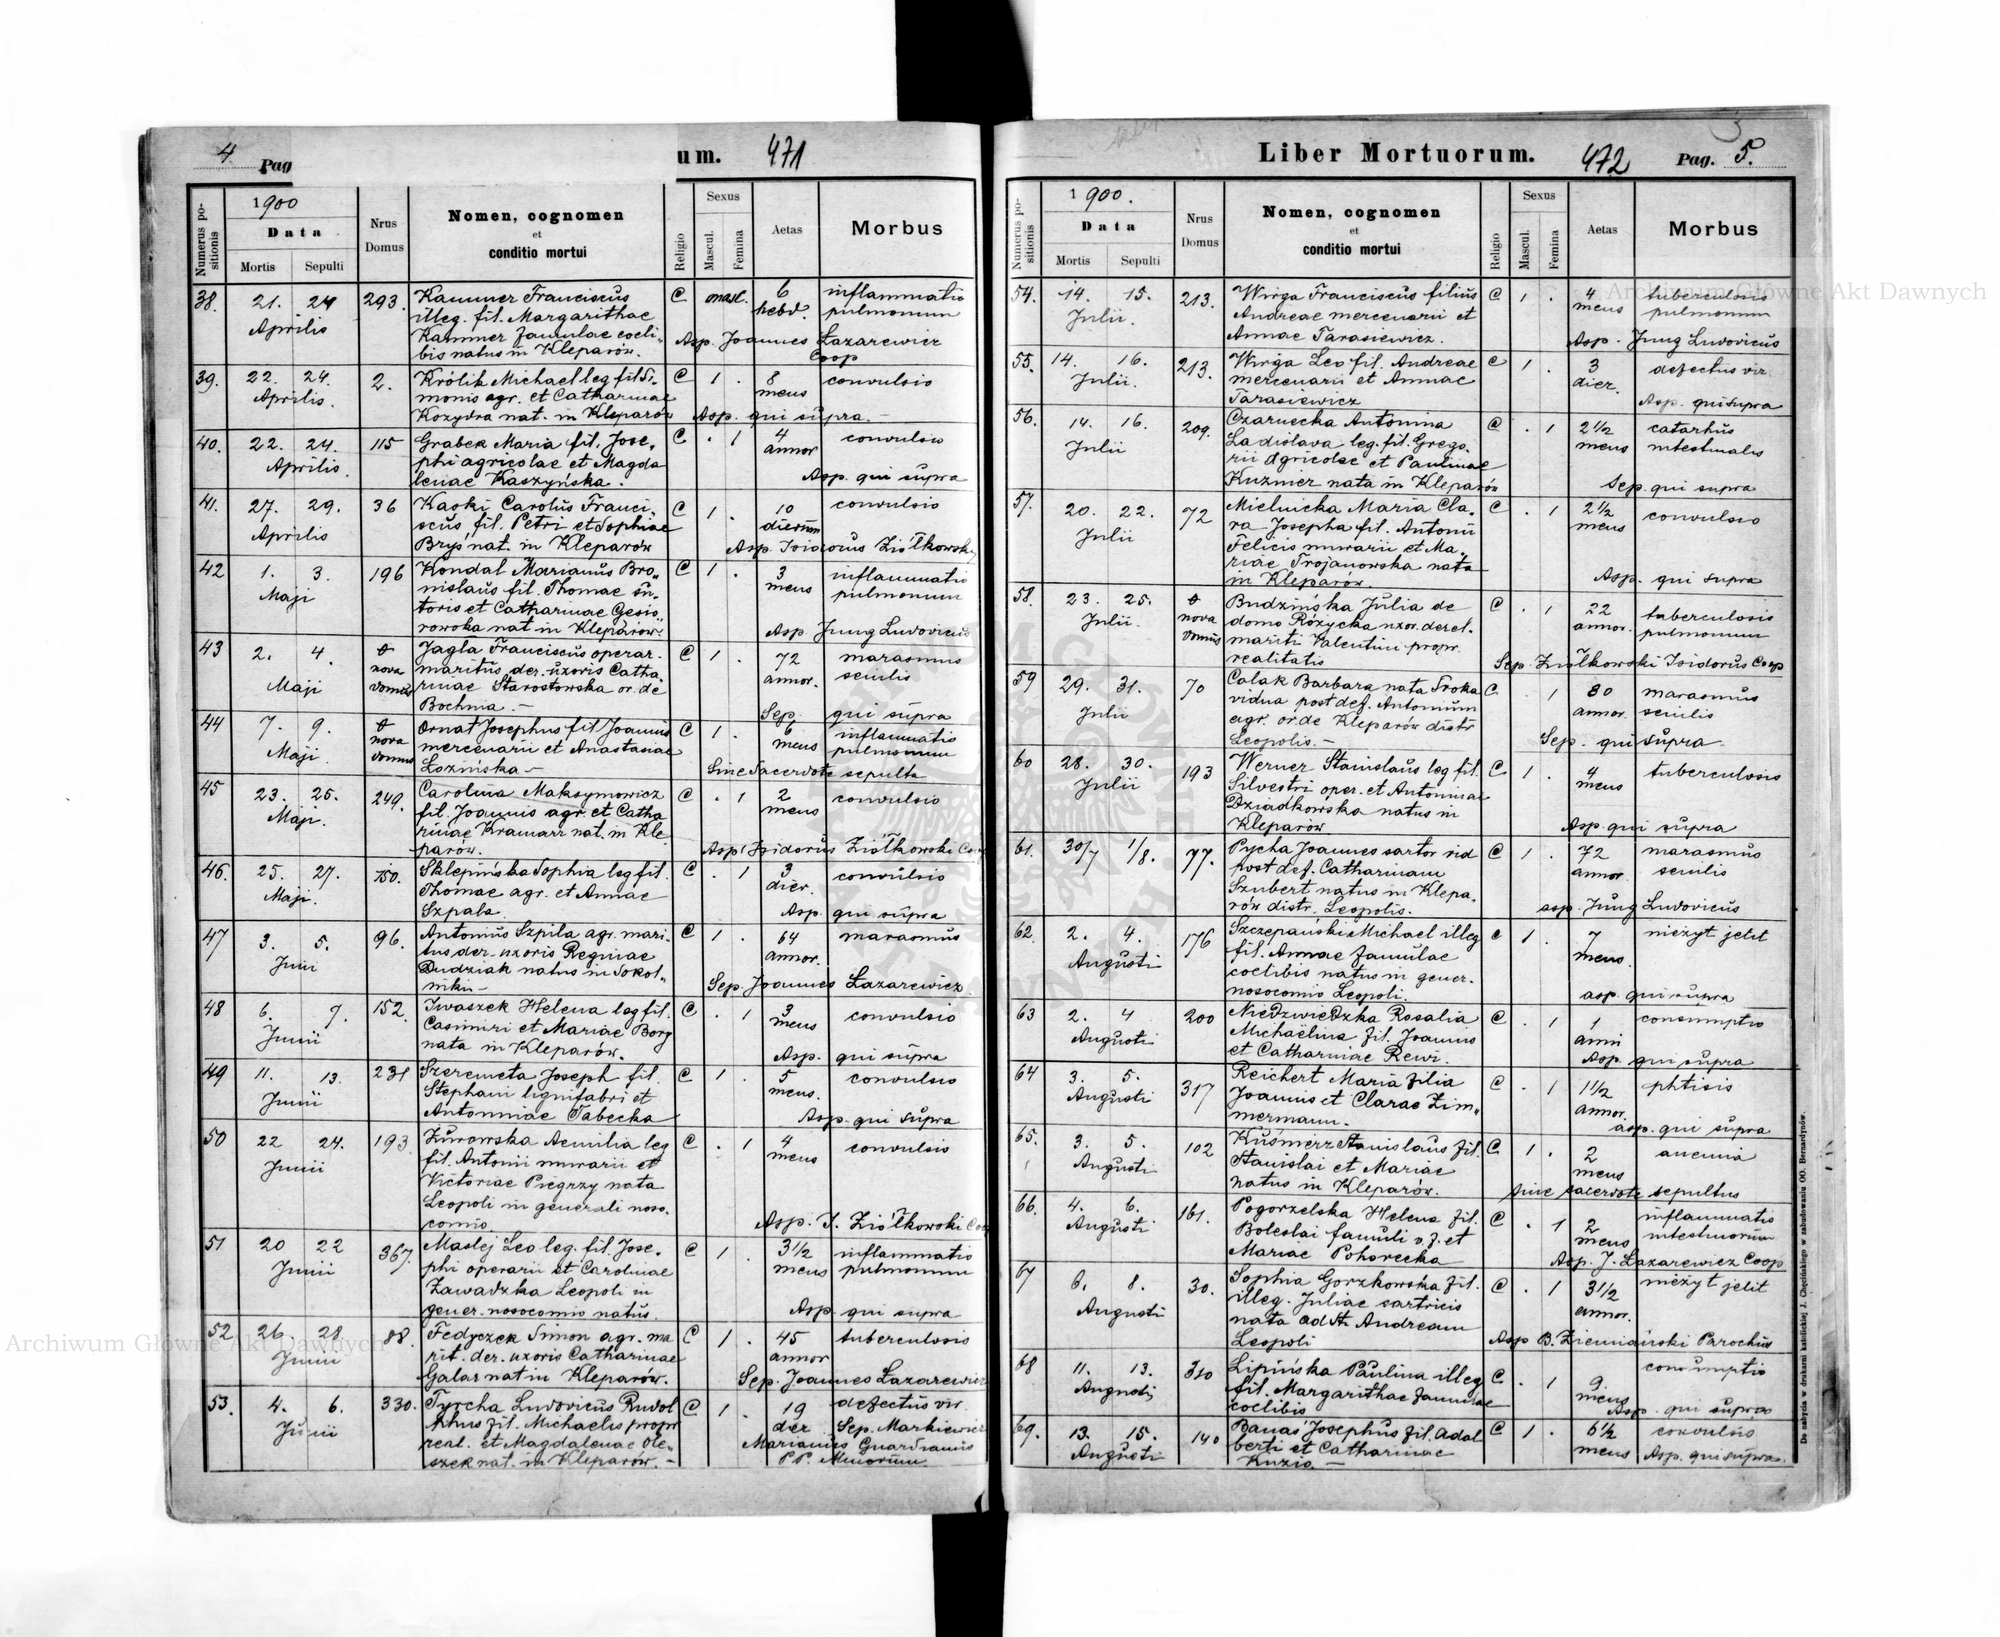 4 Pag
um. 471
Numerus positionis
1900
Data
Mortis Sepulti
Nrus Domus
Nomen, cognomen
et
conditio mortui
Religio
Sexus
Mascul. Femina
Aetas
Morbus
38. 21. 24 293. Kammer Franciscus C masc. 6 inflammatio
Aprilis illeg. fil. Margarithae hebd. pulmonum
Kammer famulae coeli- Asp. Joannes Łazarewicz
bis natus in Kleparów. Coop
39. 22. 24. 2. Królik Michael leg fil Si- C 1 . 8 convulsio
Aprilis. monis agr. et Catharinae meus
Kozydra nat. in Kleparów Asp. qui supra.-
40. 22. 24. 115 Grabek Maria fil. Jose- C . 1 4 convulsio
Aprilis phi agricolae et Magda annor
lenae Kaszyńska. Asp. qui supra
41. 27. 29. 36 Kaski Carolus Franci- C 1 . 10 convulsio
Aprilis scus fil. Petri et Sophiae dierum
Bryś nat. in Kleparów Asp. Isidorus Ziółkowski
42 1. 3. 196 Kondal Marianus Bro- C 1 . 3 inflammatio
Maji nislaus fil. Thomae su- meus pulmonum
toris et Catharinae
nat in Kleparów. Asp. Jung Ludovicus
43 2. 4. nova domus Jagla Franciscus operar. C 1 . 72 marasmus
Maji maritus der. uxoris Catha- annor. senilis
rinae Starostowska or. de
Bochnia.- Sep. qui supra
44 7. 9. nova domus Ornat Josephus fil Joannis C 1 . 6 inflammatio
Maji mercenarii et Anastasiae meus pulmonum
Łozińska- Sine Sacerdote sepulta
45 23. 25. 249. Carolina Maksymowicz C . 1 2 convulsio
Maji. fil. Joannis agr. et Catha meus
rinae Kramarz nat. in Kle
parów. Asp. Isidorus Ziółkowski
46. 25. 27. 150. Sklepińska Sophia leg fil. C . 1 3 convulsio
Maji. Thomae agr. et Annae dier.
Szpala. Asp. qui supra
47 3. 5. 96. Antonius Szpila agr. mari- C 1 . 64 marasmus
Junii tus der. uxoris Reginae annor.
Dudziak natus in Sokol-
niki- Sep. Joannes Łazarewicz.
48 6. 7. 152. Iwaszek Helena leg fil. C . 1 3 convulsio
Junii Casimiri et Mariae Borg meus
nata in Kleparów. Asp. qui supra
49 11. 13. 231 Szeremeta Joseph fil. C 1 . 5 convulsio
Junii Stephani lignifabri et meus.
Antoninae Tabecka Asp. qui supra
50 22 24. 193 Żurowska Aemilia leg C . 1 4 convulsio
Junii fil. Antonii murarii et meus
Victoriae Piegrzy nata
Leopoli in generali noso-
comio. Asp. I. Ziółkowski
51 20 22 367. Maslej Leo leg. fil. Jose- C 1 . 3½ inflammatio
Junii phi operarii et Carolinae meus pulmonum
Zawadzka Leopoli in
gener. nosocomio natus. Asp. qui supra
52 26 28 88. Fedyczek Simon agr. ma C 1 . 45 tuberculosis
Junii rit. der. uxoris Catharinae annor
Galas nat in Kleparów. Sep. Joannes Łazarewicz
53. 4. 6. 330. Tyrcha Ludovicus Rudol C 1 . 19 defectus vir.
Junii phus fil. Michaelis propr dier Sep. Markiewicz
real. et Magdalenae Ole- Marianus Guardianus
szek nat. in Kleparów.- PP. Minorum
Liber Mortuorum. 472 Pag. 5.
Numerus positionis
1900.
Data
Mortis Sepulti
Nrus Domus
Nomen, cognomen
et
conditio mortui
Religio
Sexus
Mascul. Femina
Aetas
Morbus
54. 14. 15. 213. Wirga Franciscus filius C 1 . 4 tuberculosis
Julii. Andreae mercenarii et meus pulmonum
Annae Tarasiewicz. Asp. Jung Ludovicus
55. 14. 16. 213. Wirga Leo fil. Andreae C 1 . 3 defectus vir.
Julii. mercenarii et Annae dier.
Tarasiewicz Asp. qui supra
56. 14. 16. 209. Czarnecka Antonina C . 1 2½ catarhus
Julii Ladislava leg. fil. Grego- meus intestinalis
rii agricolae et Paulinae
Kuzmier nata in Kleparów Sep. qui supra
57. 20. 22. 72 Mielnicka Maria Cla- C . 1 2½ convulsio
Julii ra Josepha fil. Antonii meus
Felicis murarii et Ma-
riae Trojanowska nata
in Kleparów. Asp. qui supra
58. 23. 25. nova domus Budzińska Julia de C . 1 22 tuberculosis
Julii. domo Różycka uxor. derel. annor. pulmonum
mariti Valentini propr.
realitatis Sep. Ziółkowski Isidorus Coop
59 29. 31. 70 Calak Barbara nata Sroka C . 1 80 marasmus
Julii vidua post def. Antonium annor. senilis
agr. or. de Kleparów distr
Leopolis.- Sep. qui supra
60 28. 30. 193 Werner Stanislaus leg fil. C 1 . 4 tuberculosis
Julii Silvestri oper. et Antoninae meus
Dziadkowska natus in
Kleparów Asp qui supra
61. 30/7 1/8. 77. Pycha Joannes sartor vid C 1 . 72 marasmus
post def. Catharinam annor. senilis
Szubert natus in Klepa-
rów distr. Leopolis. asp. Jung Ludovicus
62. 2. 4. 176 Szczepański Michael illeg C 1 . 7 nieżyt jelit
Augusti fil. Annae famulae meus.
coelibis natus in gener.
nosocomio Leopoli. asp. qui supra
63 2. 4 200 Niedzwiedzka Rosalia C . 1 1 consumptio
Augusti Michaëlina fil. Joannis anni
et Catharinae Rewi. Asp. qui supra
64 3. 5. 317 Reichert Maria filia C . 1 1½ phtisis
Augusti Joannis et Clarae Zim- annor.
mermann. asp. qui supra
65. 3. 5. 102 Kuśmierz Stanislaus fil. C 1 . 2 anemia
Augusti Stanislai et Mariae meus
natus in Kleparów. sine sacerdote sepultus
66. 4. 6. 161. Pogorzelska Helena fil. C . 1 2 inflammatio
Augusti Boleslai famuli v. f. et meus intestinorum
Mariae Pohorecka Asp. J. Łazarewicz Coop
67 6. 8. 30. Sophia Gorzkowska fil. C . 1 3½ nieżyt jelit
Augusti illeg. Juliae sartricis annor.
nata ad St. Andream
Leopoli Asp B. Ziemiański Parochus
68 11. 13. 310 Lipińska Paulina illeg C . 1 9 consumptio
Augusti fil. Margarithae famulae meus
coelibis Asp. qui supra
69. 13. 15. 140 Banaś Josephus fil. Adal C 1 . 6½ convulsio
Augusti berti et Catharinae meus Asp. qui supra.
Kuzio.-
Do nabycia w drukarni katolickiej J. Chęcińskiego w zabudowaniu OO. Bernardynów.
Archiwum Główne Akt Dawnych
Archiwum Główne Akt Dawnych